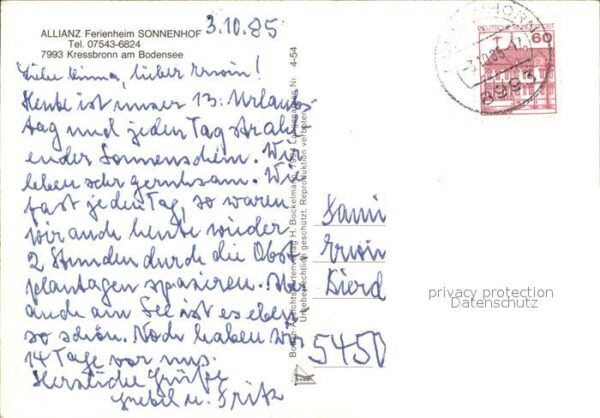 ALLIANZ Ferienheim SONNENHOF
Tel. 07543-6824
7993 Kressbronn am Bodensee
3.10.85
Liebe Emma, lieber Erwin!
Heute ist unser 13. Urlaubs
tag und jeden Tag strahl
ender Sonnenschein. Wir
leben sehr geruhsam. Wie
fast jeden Tag, so waren
wir auch heute wieder
2 Stunden durch die Obst
plantagen spazieren. Aber
auch am See ist es eben
so schön. Noch haben wir
14 Tage vor uns.
Herzliche Grüße
u. Fritz
Nr. 4-54
Urheberrechtlich geschützt. Reproduktion verboten
Fami
Erwin
Dierd
5450
DEUTSCHE BUNDESPOST
60
-3.10.85-17
privacy protection
Datenschutz